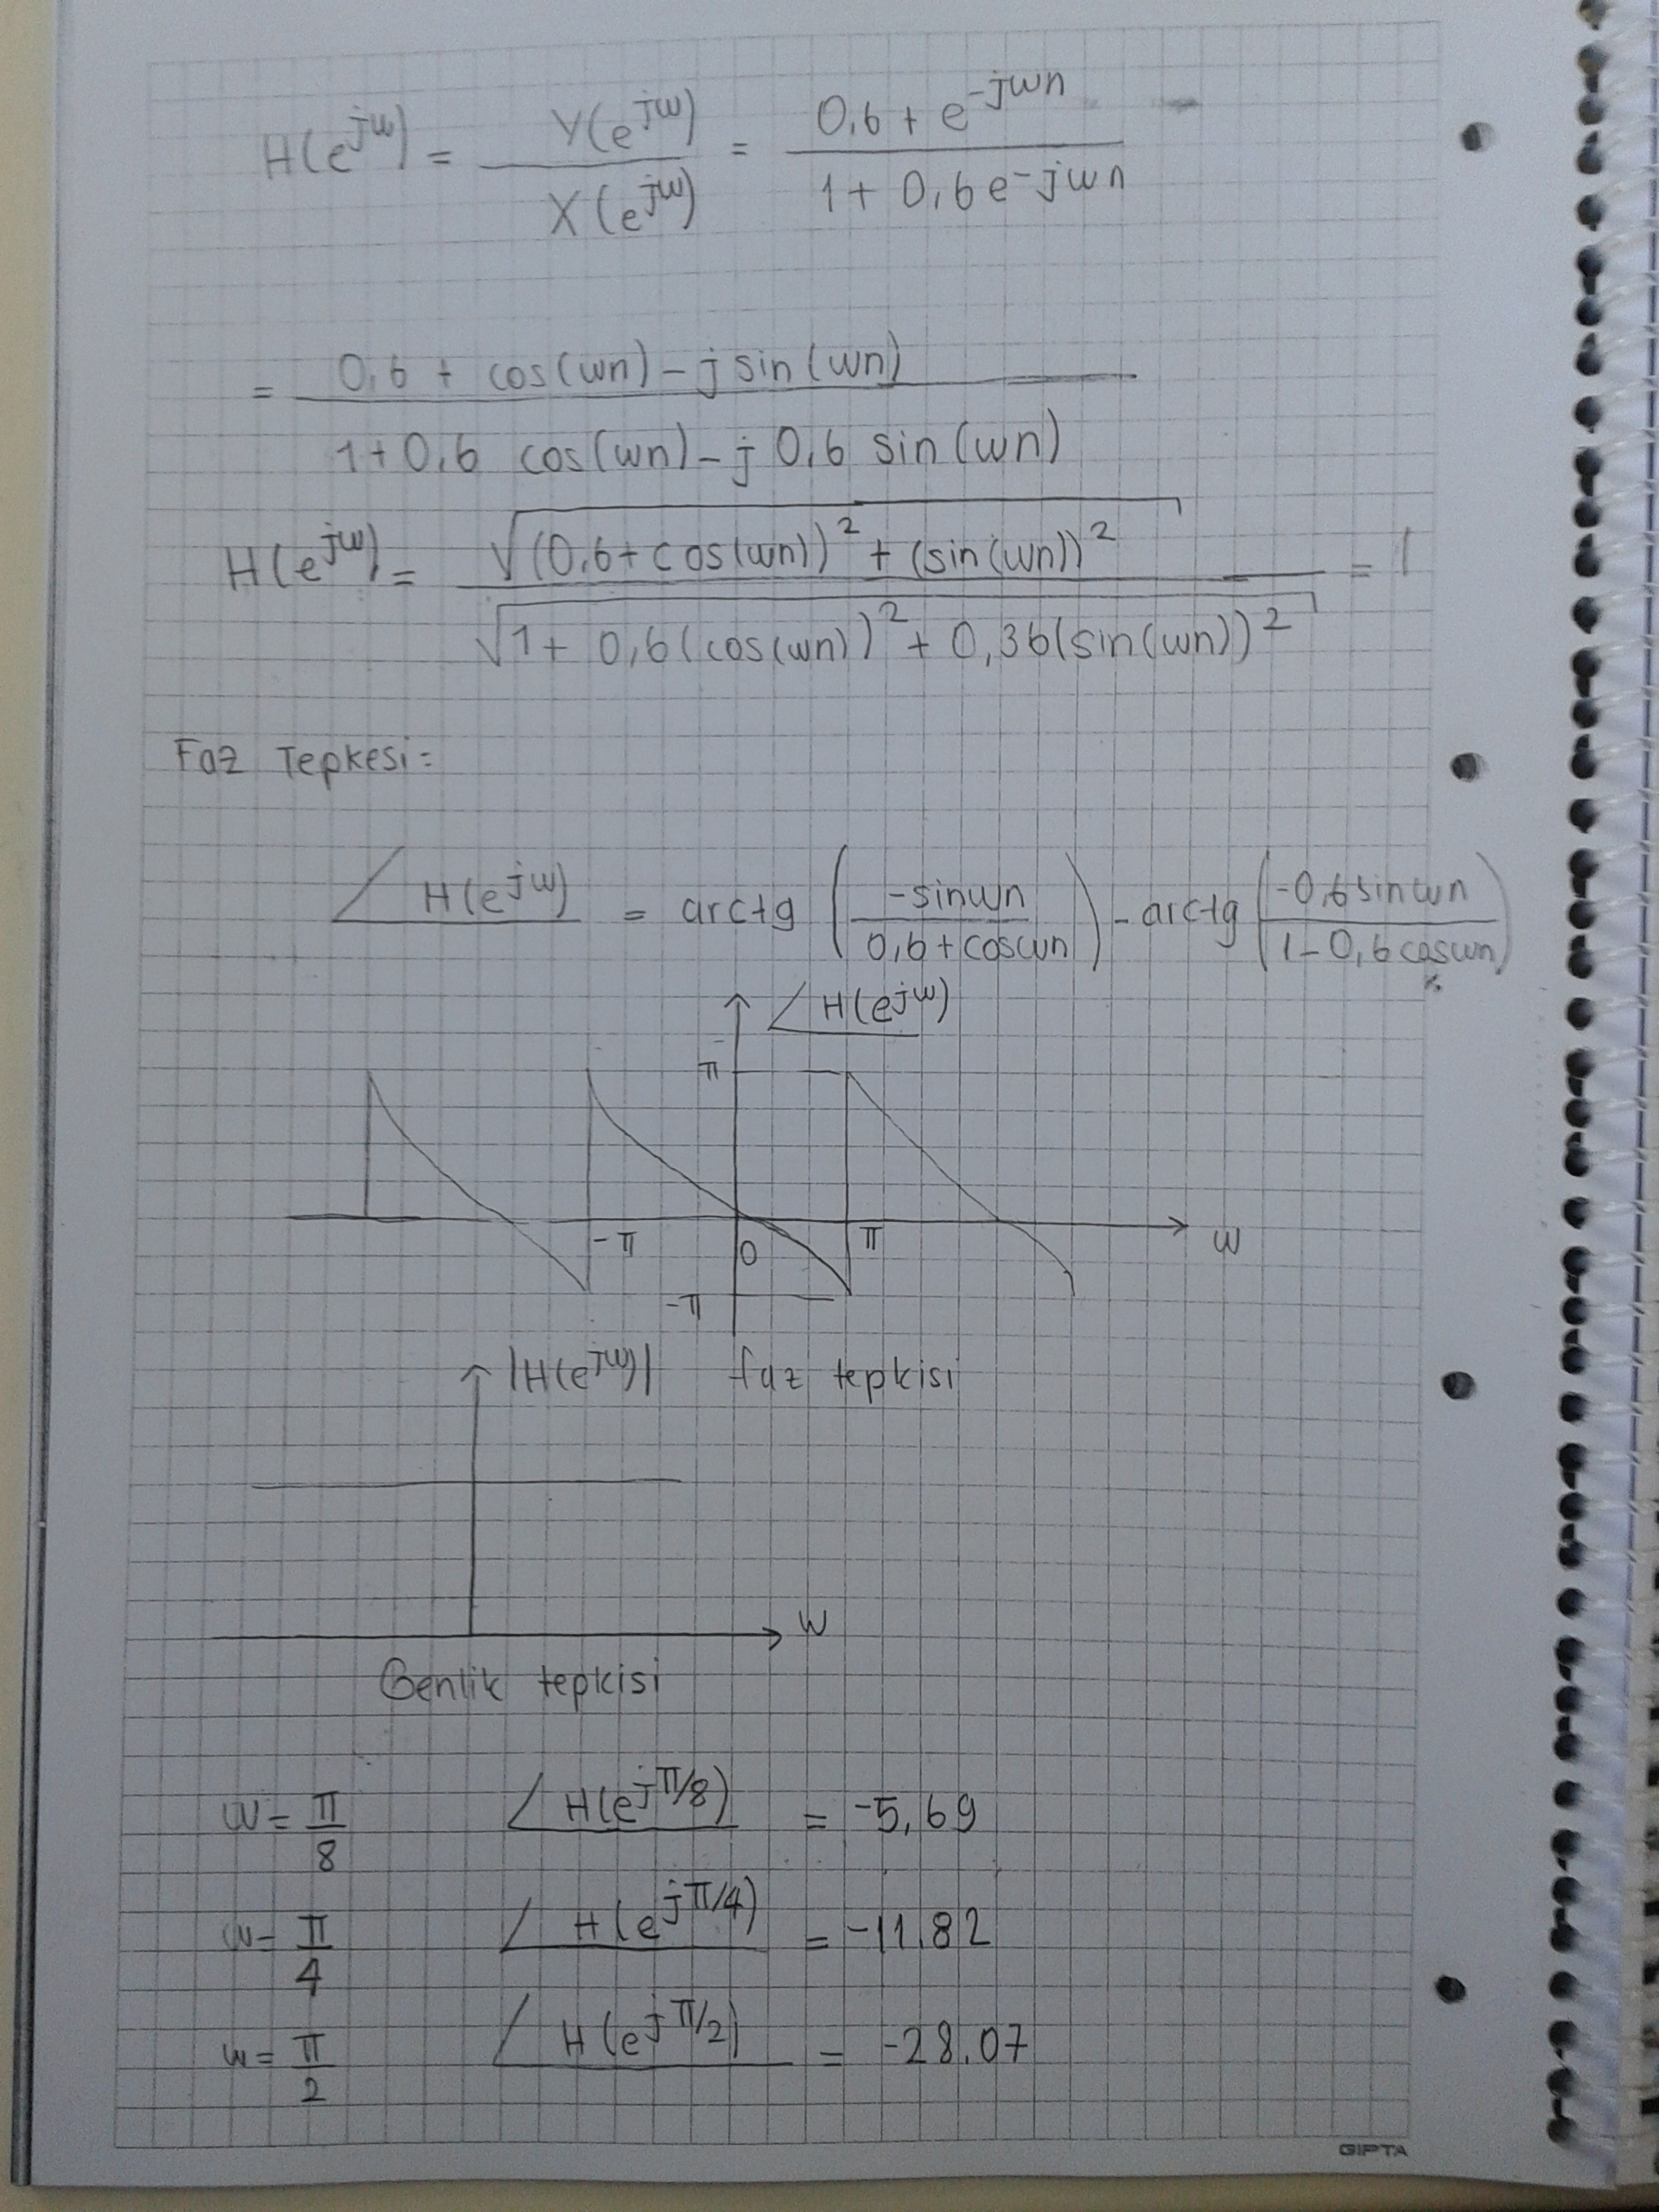 H(e^jw) = Y(e^jw) / X(e^jw) = 0,6 + e^-jwn / 1 + 0,6e^-jwn
= 0,6 + cos(wn) - j sin(wn) / 1+0,6 cos(wn) - j 0,6 sin(wn)
H(e^jw) = √(0,6+cos(wn))² + (sin(wn))² / √1 + 0,6(cos(wn))² + 0,36(sin(wn))² = 1
Faz Tepkesi:
∠H(e^jw) = arctg (-sinwn / 0,6+coswn) - arctg (-0,6sinwn / 1-0,6coswn)
∠H(e^jw)
π
-π 0 π w
-π
|H(e^jw)| faz tepkisi
w
Genlik tepkisi
w = π/8 ∠H(e^jπ/8) = -5,69
w = π/4 ∠H(e^jπ/4) = -11.82
w = π/2 ∠H(e^jπ/2) = -28.07
GIPTA